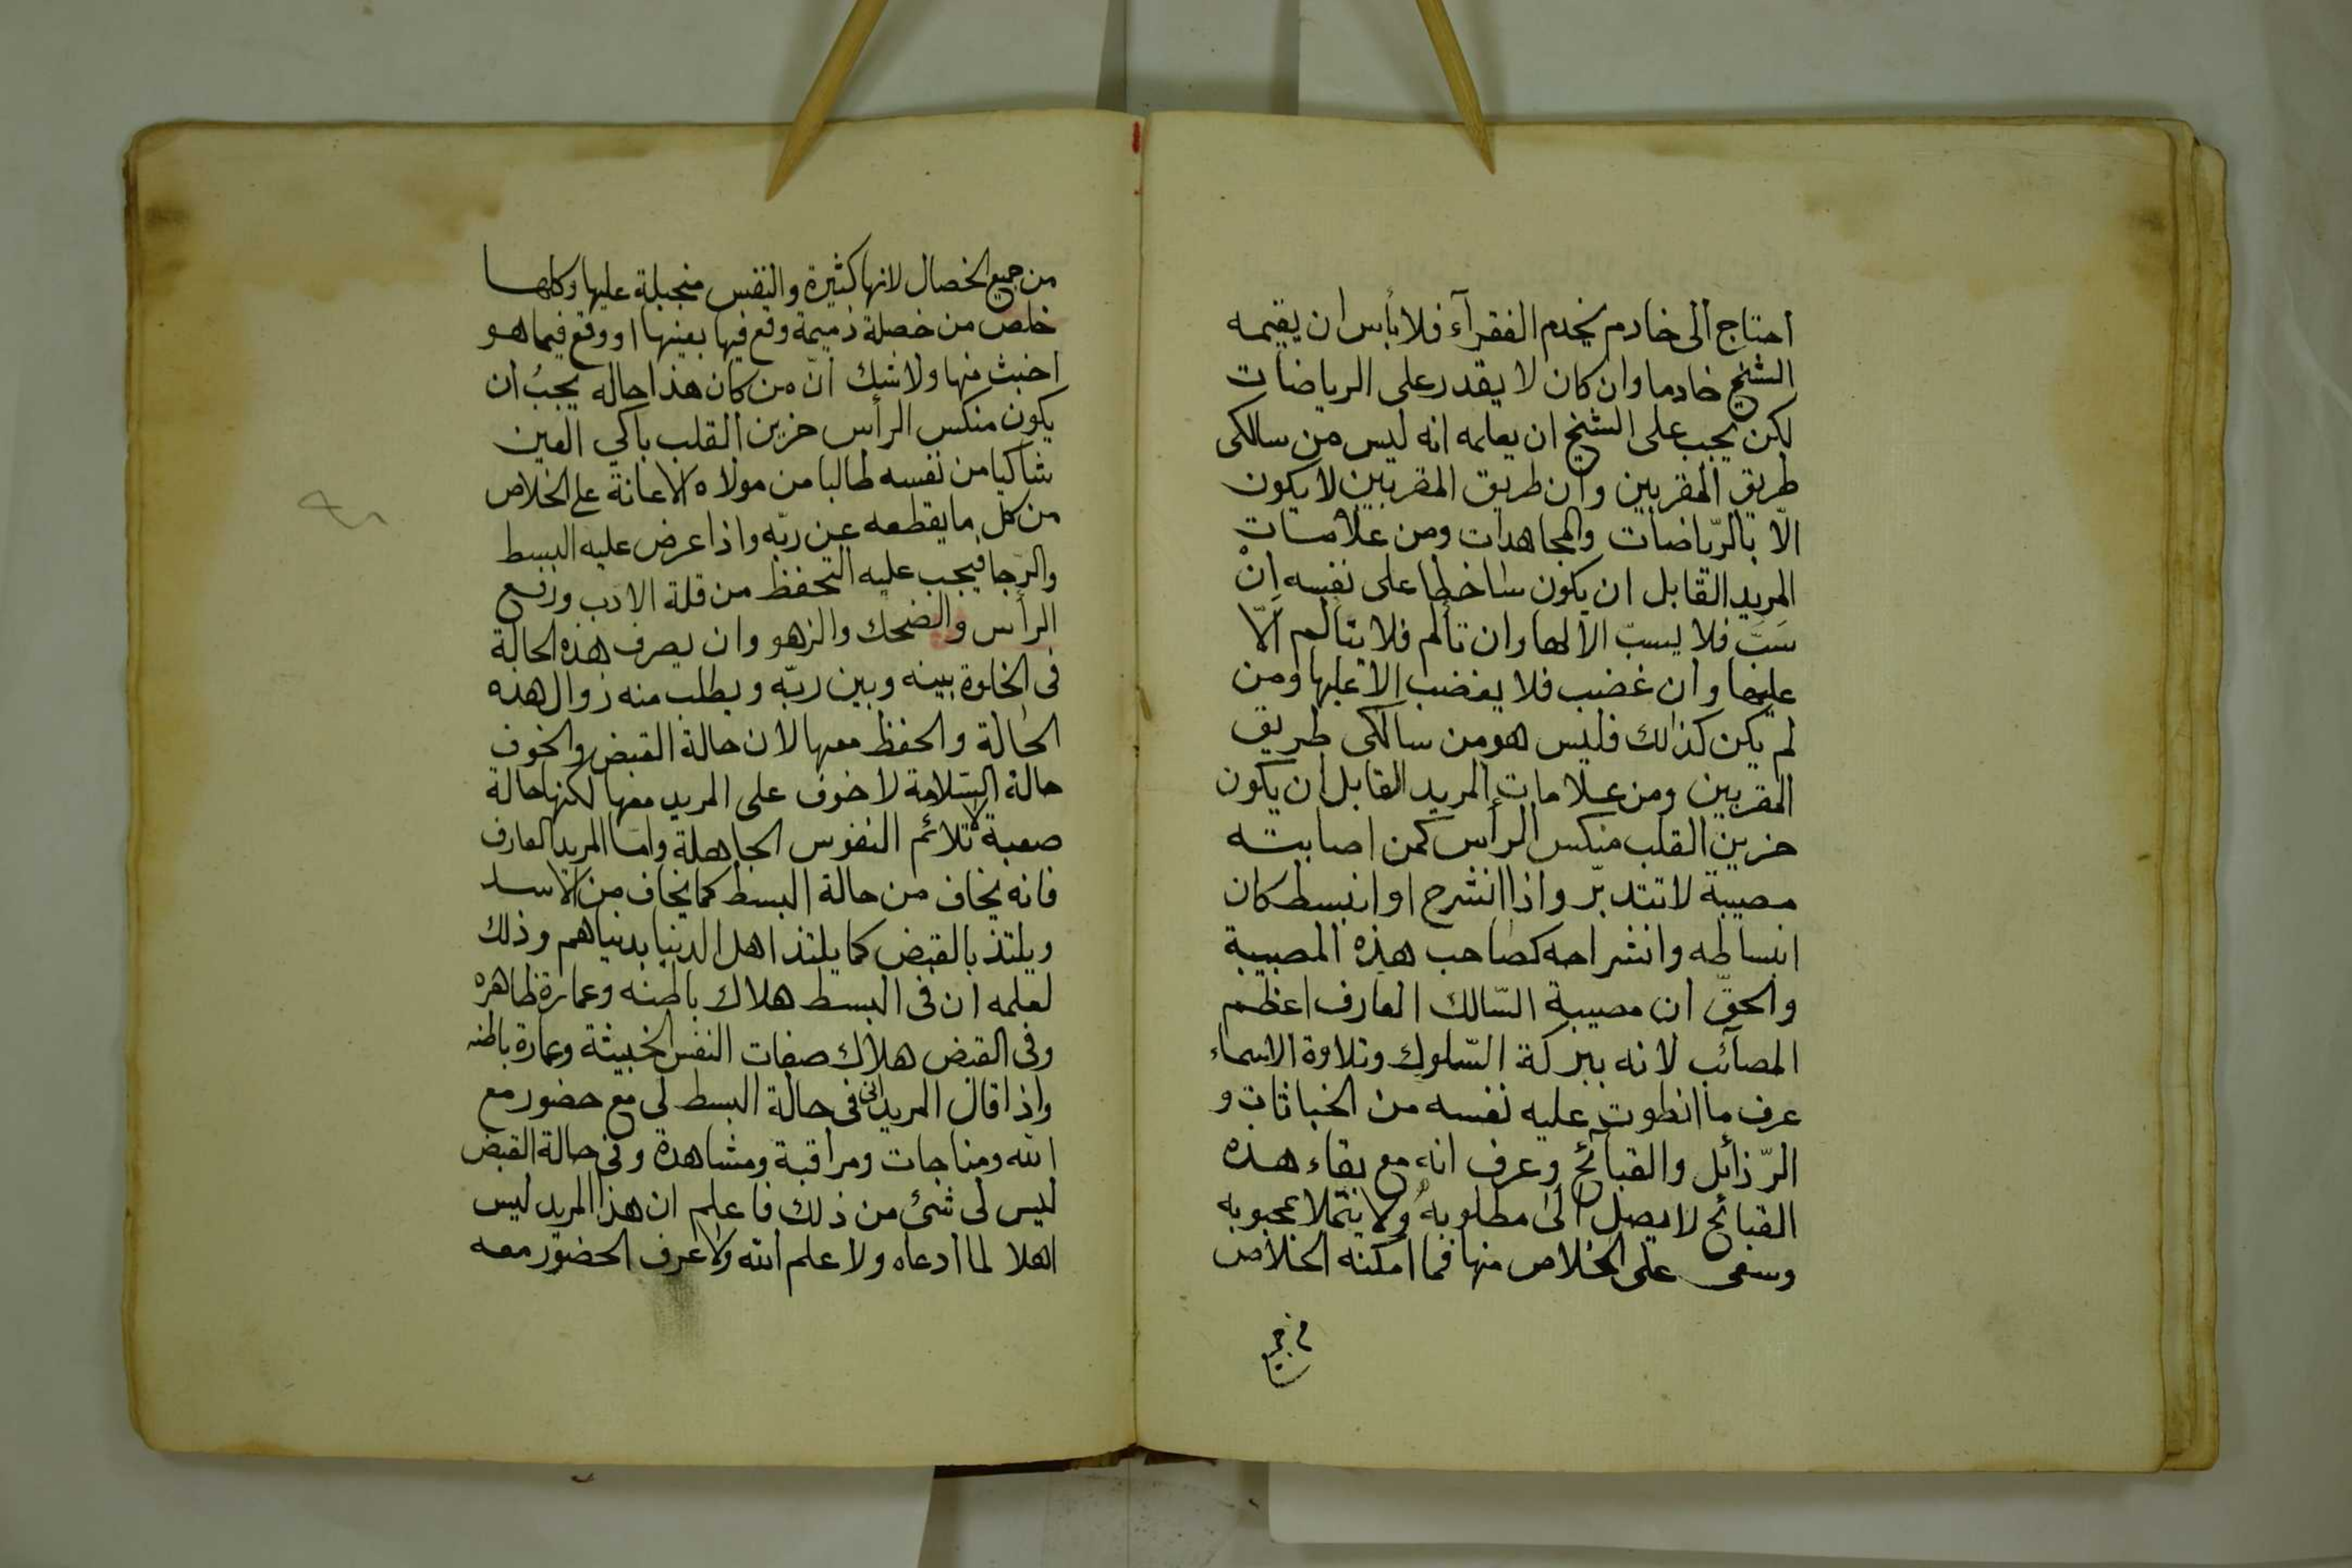 احتاج الى خادم يخدم الفقرآء فلا بأس ان يقيمه
الشيخ خادما وان كان لا يقدر على الرياضات
لكن يجب على الشيخ ان يعلمه انه ليس من سالكى
طريق المقربين وان طريق المقربين لا يكون
الّا بالرّياضات والمجاهدات ومن علامات
المريد القابل ان يكون ساخطا على نفسه اِنْ
سَبَّ فلا يسبّ الا لها وان تألم فلا يتألم الّا
عليها وان غضب فلا يغضب الا عليها ومن
لم يكن كذلك فليس هو من سالكى طريق
المقربين ومن علامات المريد القابل ان يكون
حزين القلب منكس الرأس كمن اصابته
مصيبة لا تتدبّر واذا انشرح او انبسط كان
انبساطه وانشراحه كصاحب هذه المصيبة
والحقّ ان مصيبة السّالك العارف اعظم
المصآئب لانه ببركة السّلوك وتلاوة الاسماء
عرف ما انطوت عليه نفسه من الخباثات و
الرّذائل والقبآئح وعرف انه مع بقاء هذه
القبائح لا يصل الى مطلوبه ولا يتملا بمحبوبه
وسعى على الخلاص منها فما امكنه الخلاص
من جميع
من جميع الخصال لانها كثيرة والنفس منجبلة عليها وكلما
خلص من خصلة ذميمة وقع فيها بعينها او وقع فيما هو
اخبث منها ولا شك انّ من كان هذا حاله يجبُ ان
يكون منكس الرأس حزين القلب باكي العين
شاكيا من نفسه طالبا من مولاه الاعانة على الخلاص
من كل ما يقطعه عن ربّه واذا عرض عليه البسط
والرّجا فيجب عليه التحفظ من قلة الادب ورفع
الرأس والضحك والزهو وان يصرف هذه الحالة
فى الخلوة بينه وبين ربّه ويطلب منه زوال هذه
الحالة والحفظ معها لان حالة القبض والخوف
حالة السّلامة لا خوف على المريد معها لكنها حالة
صعبة لا تلائم النفوس الجاهلة واما المريد العارف
فانه يخاف من حالة البسط كما يخاف من الاسد
ويلتذ بالقبض كما يلتذ اهل الدنيا بدنياهم وذلك
لعلمه ان فى البسط هلاك باطنه وعمارة ظاهره
وفى القبض هلاك صفات النفس الخبيثة وعمارة باطنه
واذا قال المريد انى فى حالة البسط لى مع حضور مع
الله ومناجات ومراقبة ومشاهدة وفى حالة القبض
ليس لى شئ من ذلك فاعلم ان هذا المريد ليس
اهلا لما ادعاه ولا علم الله ولا عرف الحضور معه